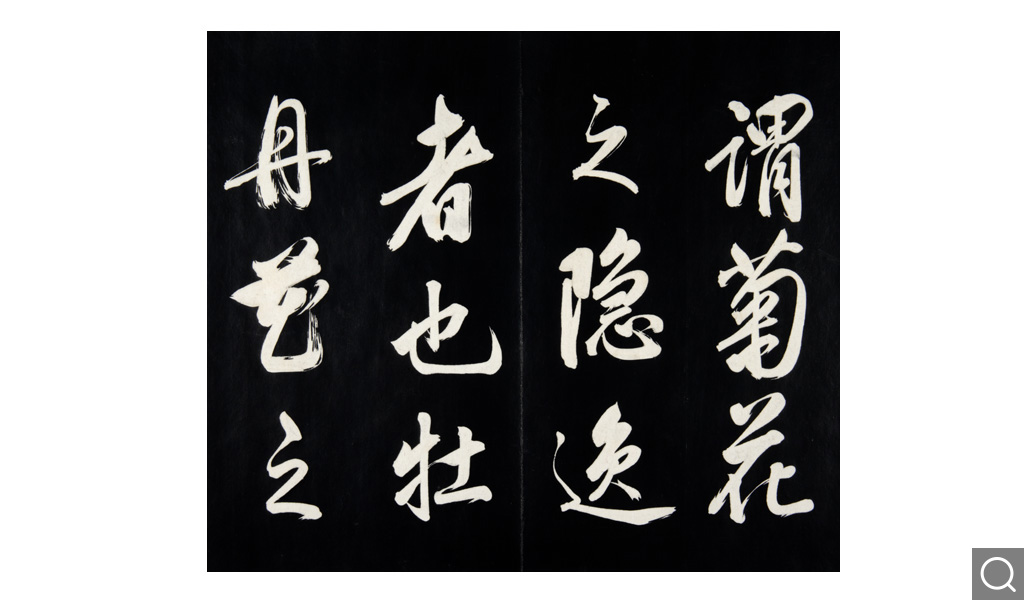 谓菊花
之隐逸
者也牡
丹花之